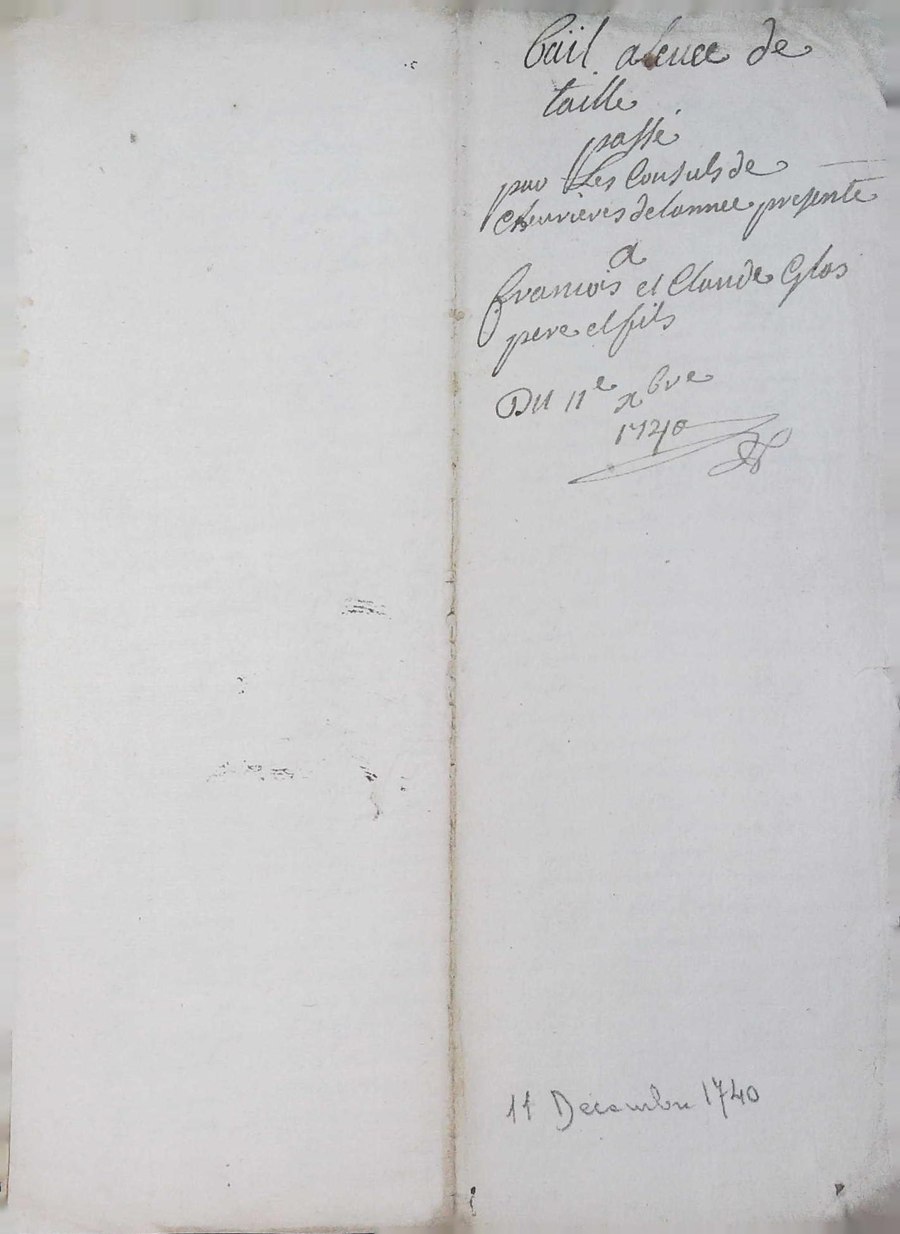 Bail a levee de
taille
passé
par Les Consuls de
Chevrieres de lannee presente
a
francois et Claude Glas
pere et fils
Du 11e xbre
1740
11 Decembre 1740